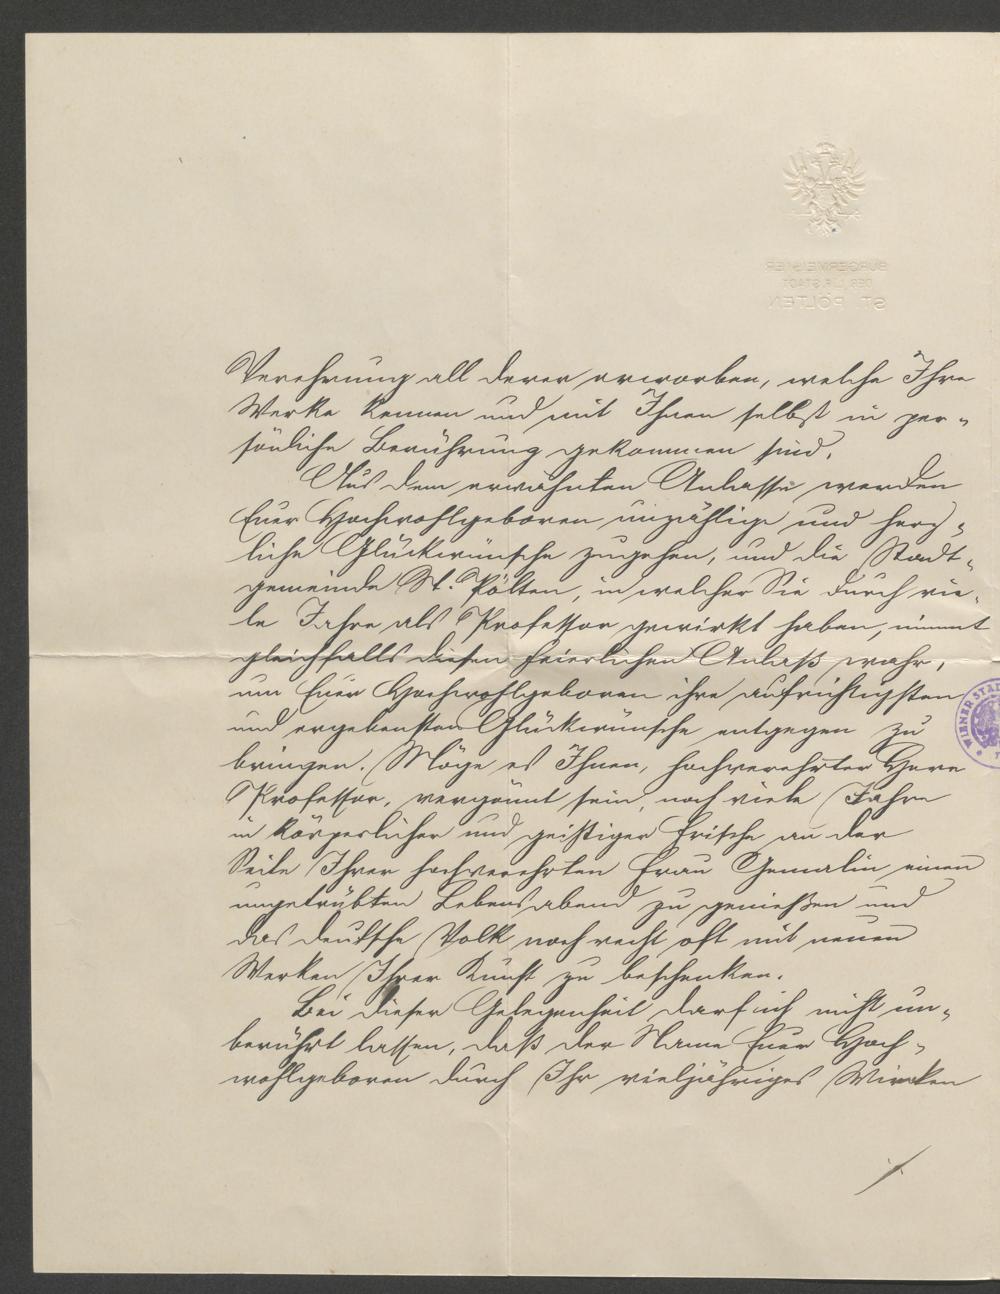 BÜRGERMEISTER
DER L.F. STADT
ST. PÖLTEN
Verehrung all derer erworben, welche Ihre
Werke kennen und mit Ihnen selbst in per-
sönliche Berührung gekommen sind.
Aus dem erwähnten Anlasse werden
Euer Hochwohlgeboren unzählige und herz-
liche Glückwünsche zugehen, und die Stadt-
gemeinde St. Pölten, in welcher Sie durch vie-
le Jahre als Professor gewirkt haben, nimmt
gleichfalls diesen feierlichen Anlaß wahr,
um Euer Hochwohlgeboren ihre aufrichtigsten
und ergebensten Glückwünsche entgegen zu
bringen. Möge es Ihnen, hochverehrter Herr
Professor, vergönnt sein, noch viele Jahre
in körperlicher und geistiger Frische an der
Seite Ihrer hochverehrten Frau Gemalin einen
ungetrübten Lebensabend zu genießen und
das deutsche Volk noch recht oft mit neuen
Werken Ihrer Kunst zu beschenken.
Bei dieser Gelegenheit darf ich nicht un-
berührt lassen, daß der Name Euer Hoch-
wohlgeboren durch Ihr vieljähriges Wirken
WIENER STA